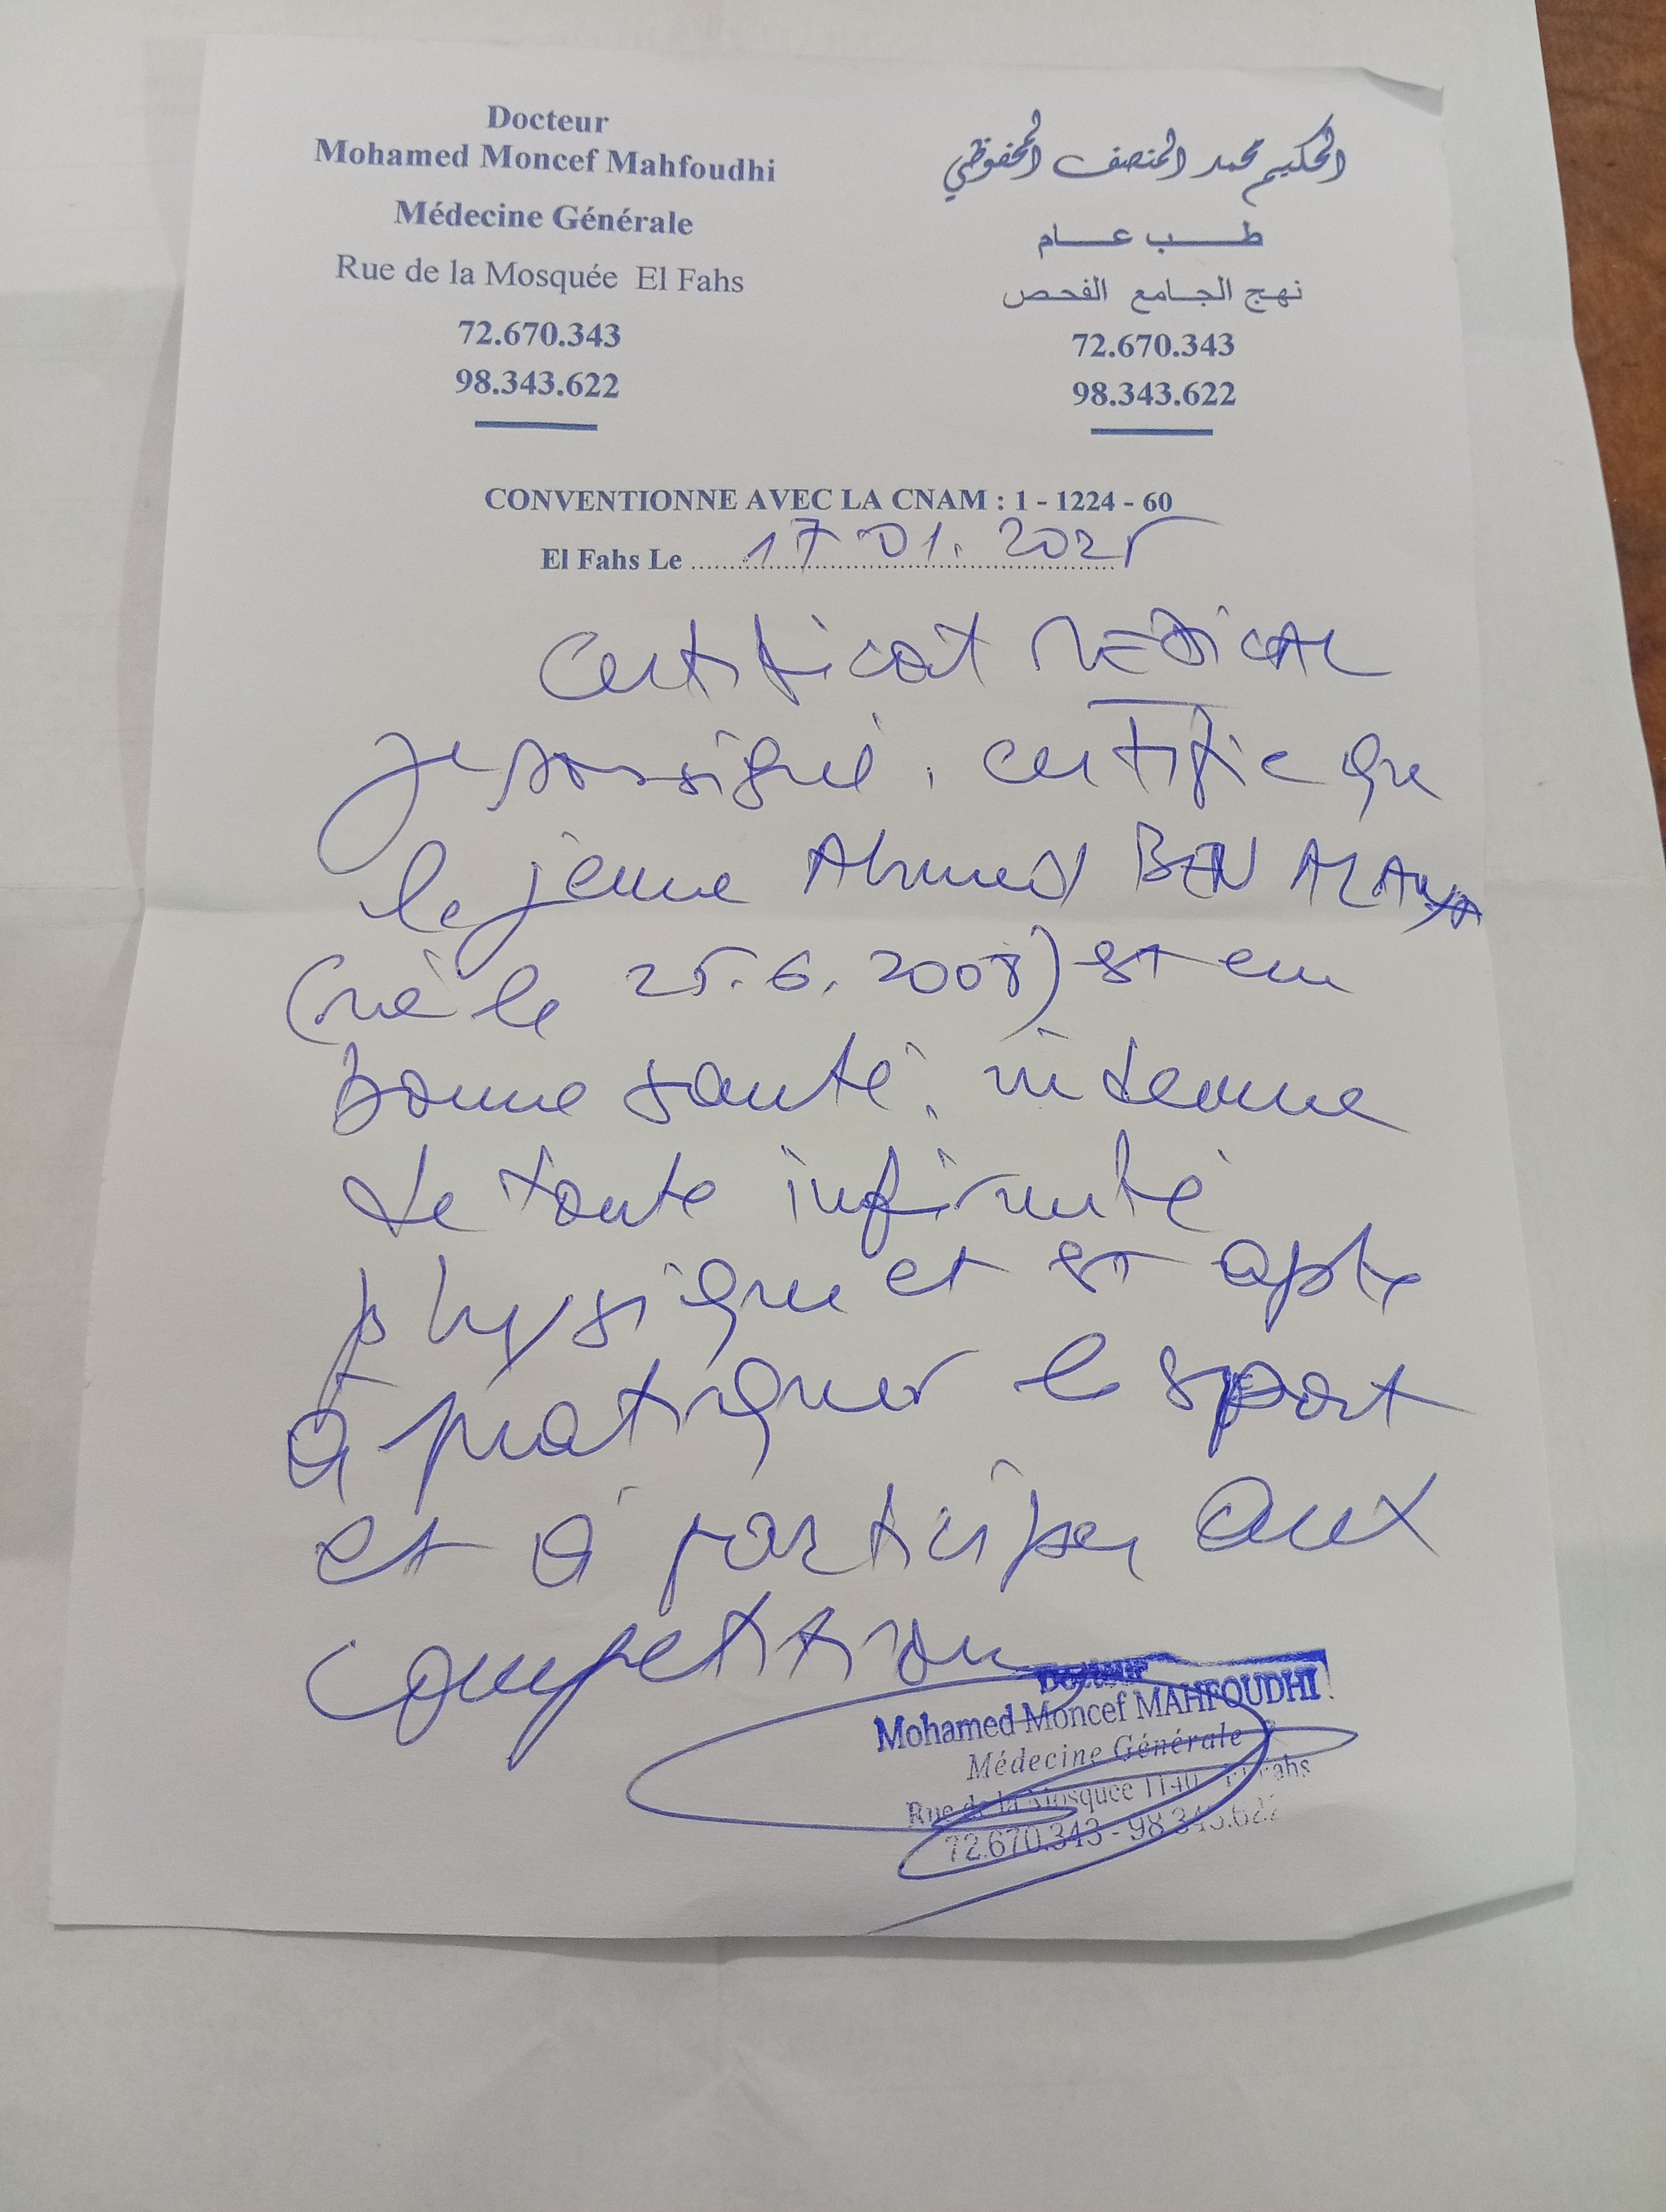 Docteur
Mohamed Moncef Mahfoudhi
Médecine Générale
Rue de la Mosquée El Fahs
72.670.343
98.343.622
الحكيم محمد المنصف المحفوظي
طب عام
نهج الجامع الفحص
72.670.343
98.343.622
CONVENTIONNE AVEC LA CNAM : 1 - 1224 - 60
El Fahs Le 17 01. 2025
Certificat MEDICAL
Je soussigné, certifie que
le jeune Ahmed BEN ALAYA
(né le 25.6.2008) est en
bonne santé, indemne
de toute infirmité
physique et est apte
à pratiquer le sport
et à participer aux
compétitions
Docteur
Mohamed Moncef MAHFOUDHI
Médecine Générale
Rue de la Mosquée 1140 El Fahs
72.670.343 - 98.343.622